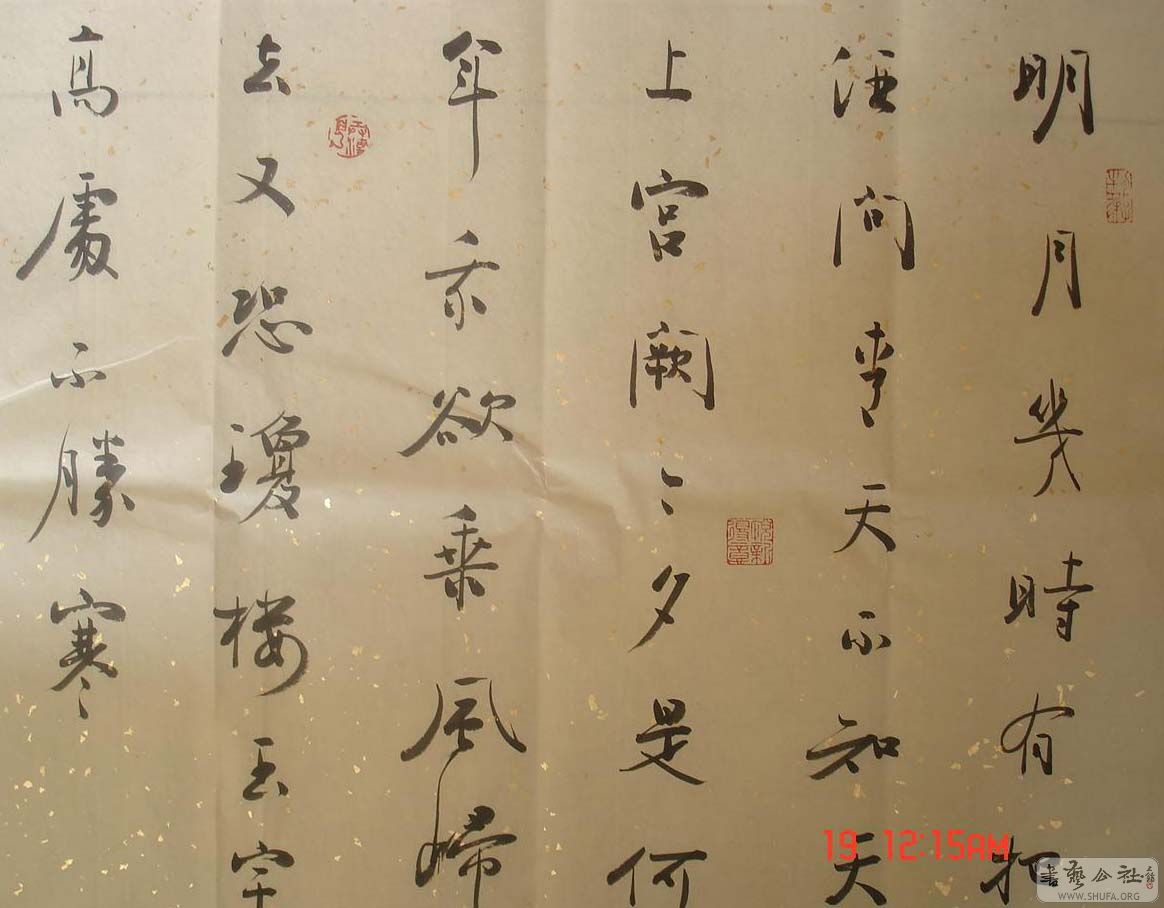 明月幾時有把
酒問青天不知天
上宮闕今夕是何
年我欲乘風歸
去又恐瓊樓玉宇
高處不勝寒
19 12:15AM
書藝公社
WWW.SHUFA.ORG